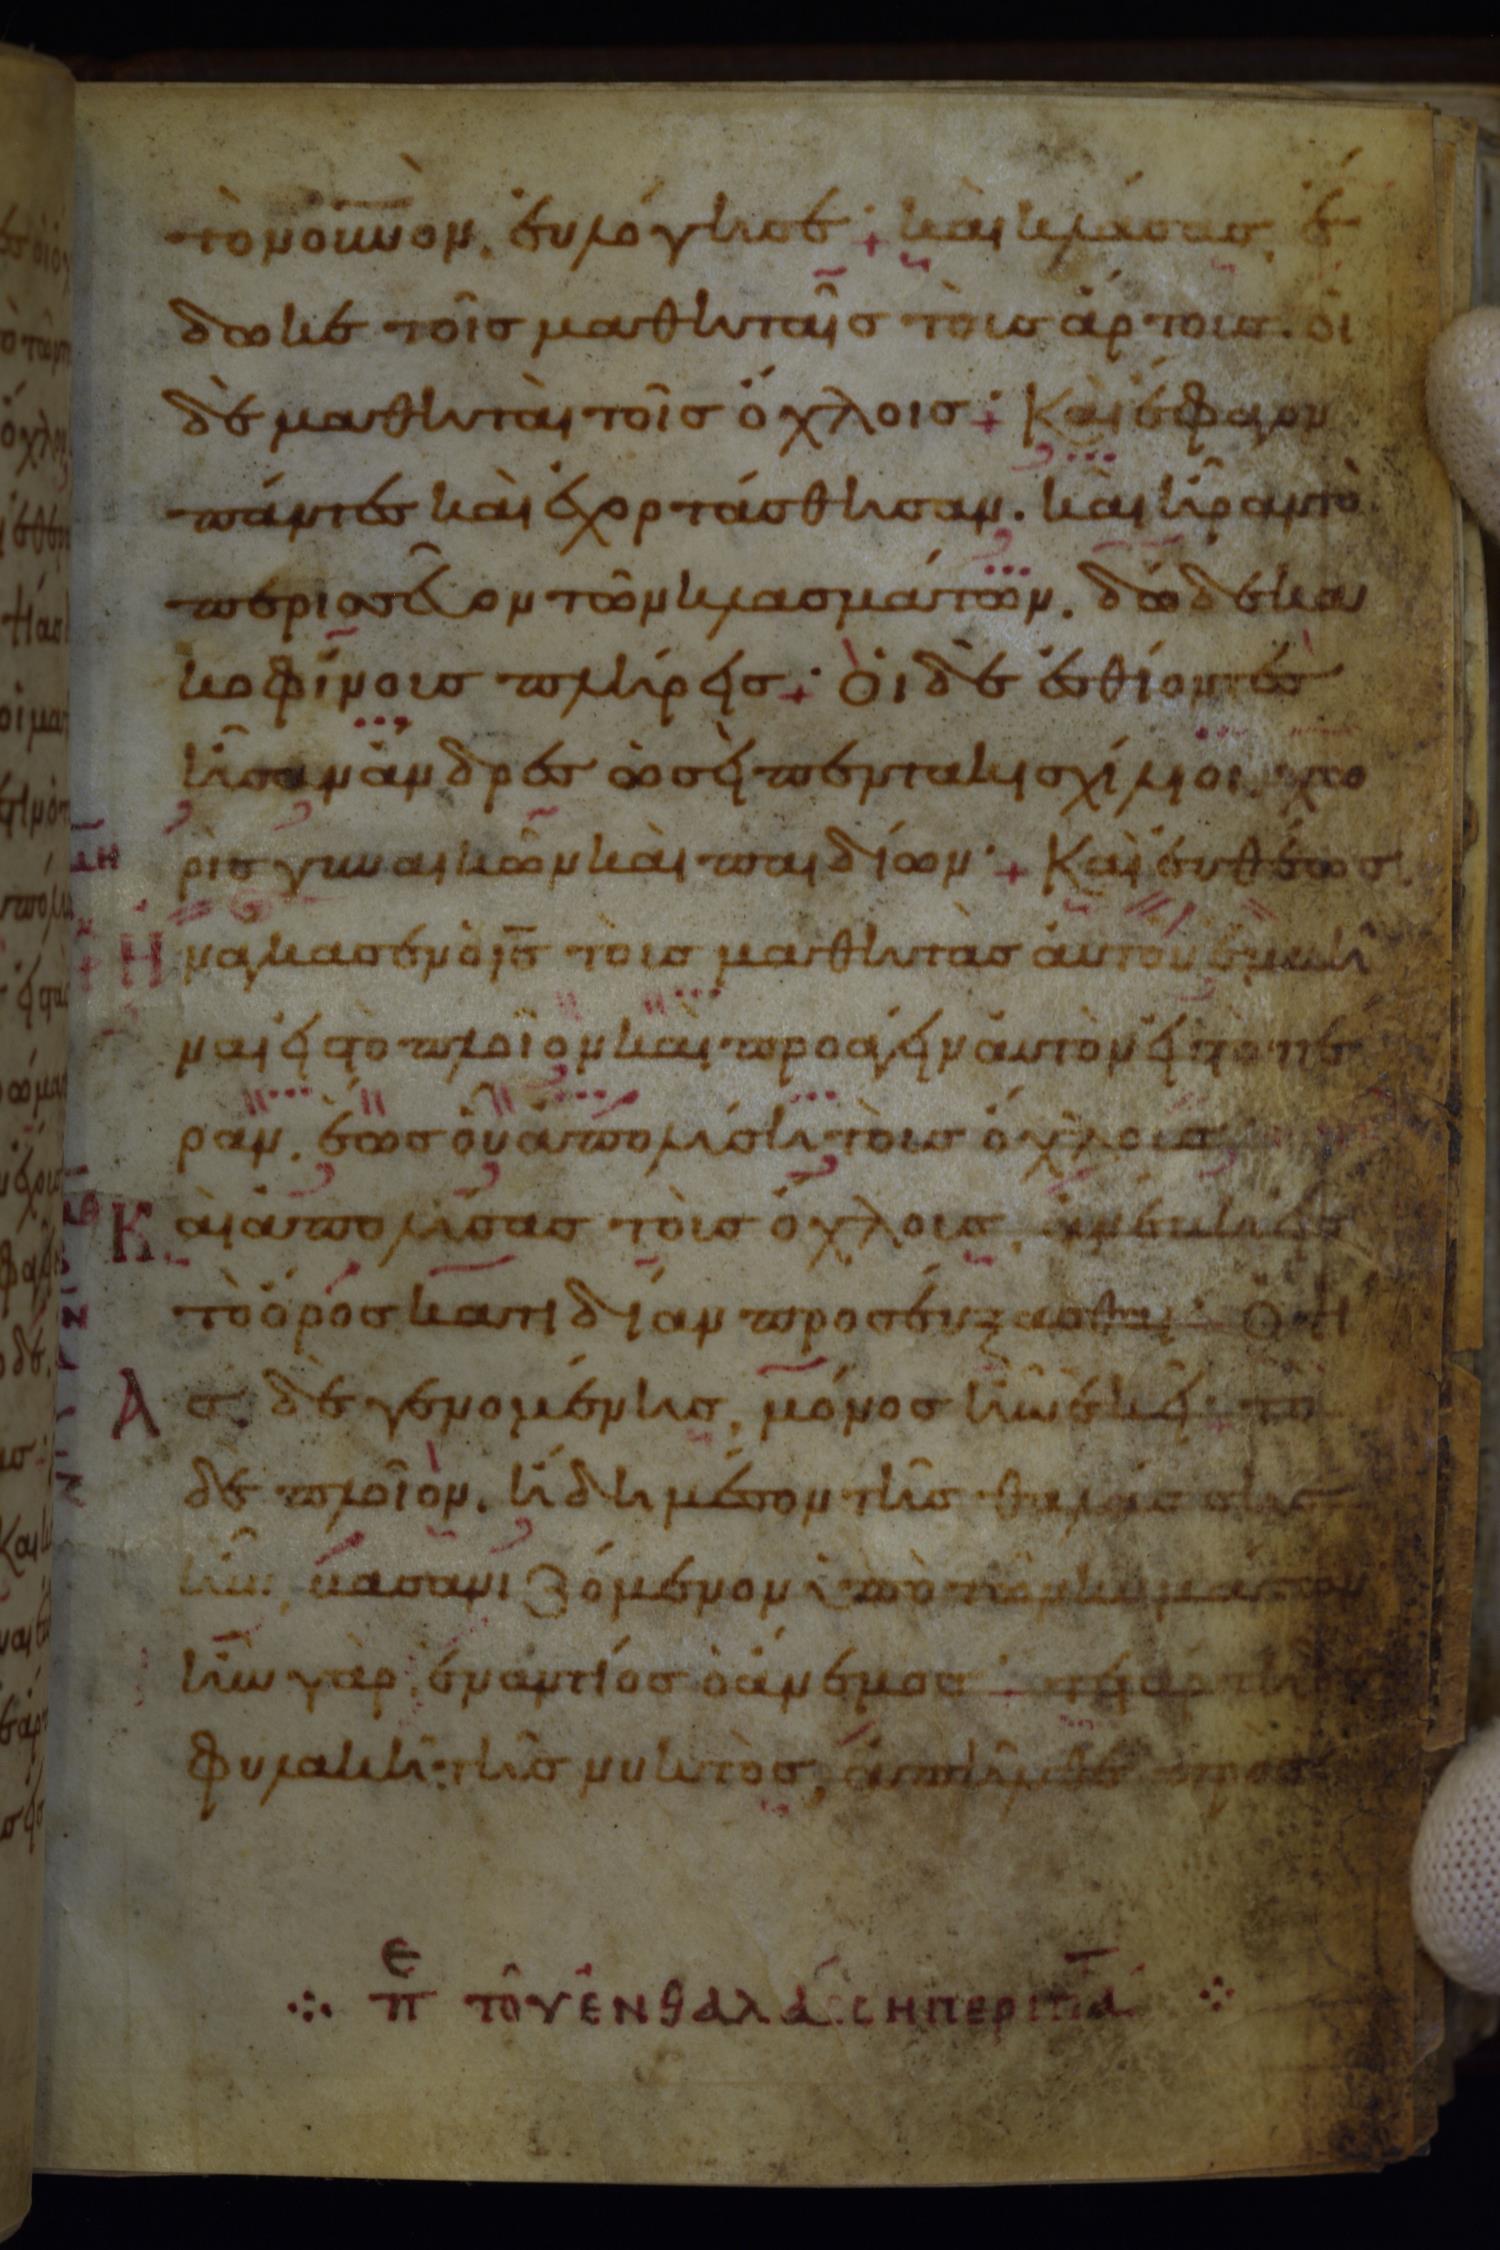 τὸν οὐνὸν, ἐυλόγησε + καὶ κλάσας, ἔ
δωκε τοῖς μαθηταῖς τοὺς ἄρτους. οἱ
δὲ μαθηταὶ τοῖς ὄχλοις + Καὶ ἔφαγον
πάντες καὶ ἐχορτάσθησαν. καὶ ἦραν τὸ
περισσεῦον τῶν κλασμάτων. δώδεκα
κοφίνους πλήρεις + Οἱ δὲ ἐσθίοντες
ἦσαν ἄνδρες ὡσεὶ πεντακισχίλιοι, χω
ρὶς γυναικῶν καὶ παιδίων + Καὶ εὐθέως
Η νάγκασεν ὁ ις τοὺς μαθητὰς αὐτοῦ ἐμβῆ
ναι εἰς τὸ πλοῖον καὶ προάγειν αὐτὸν εἰς τὸ πέ
ραν. ἕως οὗ ἀπολύσῃ τοὺς ὄχλους
Κ αὶ ἀπολύσας τοὺς ὄχλους, ἀνέβη εἰς
τὸ ὄρος κατιδίαν προσεύξασθαι Οψι
ας δὲ γενομένης, μόνος ἦν ἐκεῖ + τὸ
δὲ πλοῖον, ἤδη μέσον τῆς θαλάσσης
ἦν, βασανιζόμενον ὑπὸ τῶν κυμάτων
ἦν γὰρ ἐναντίος ὁ ἄνεμος + τετάρτῃ
φυλακῇ τῆς νυκτὸς, ἀπῆλθε πρὸς
ε π τοῦ ἐν θαλάσσῃ περιπα